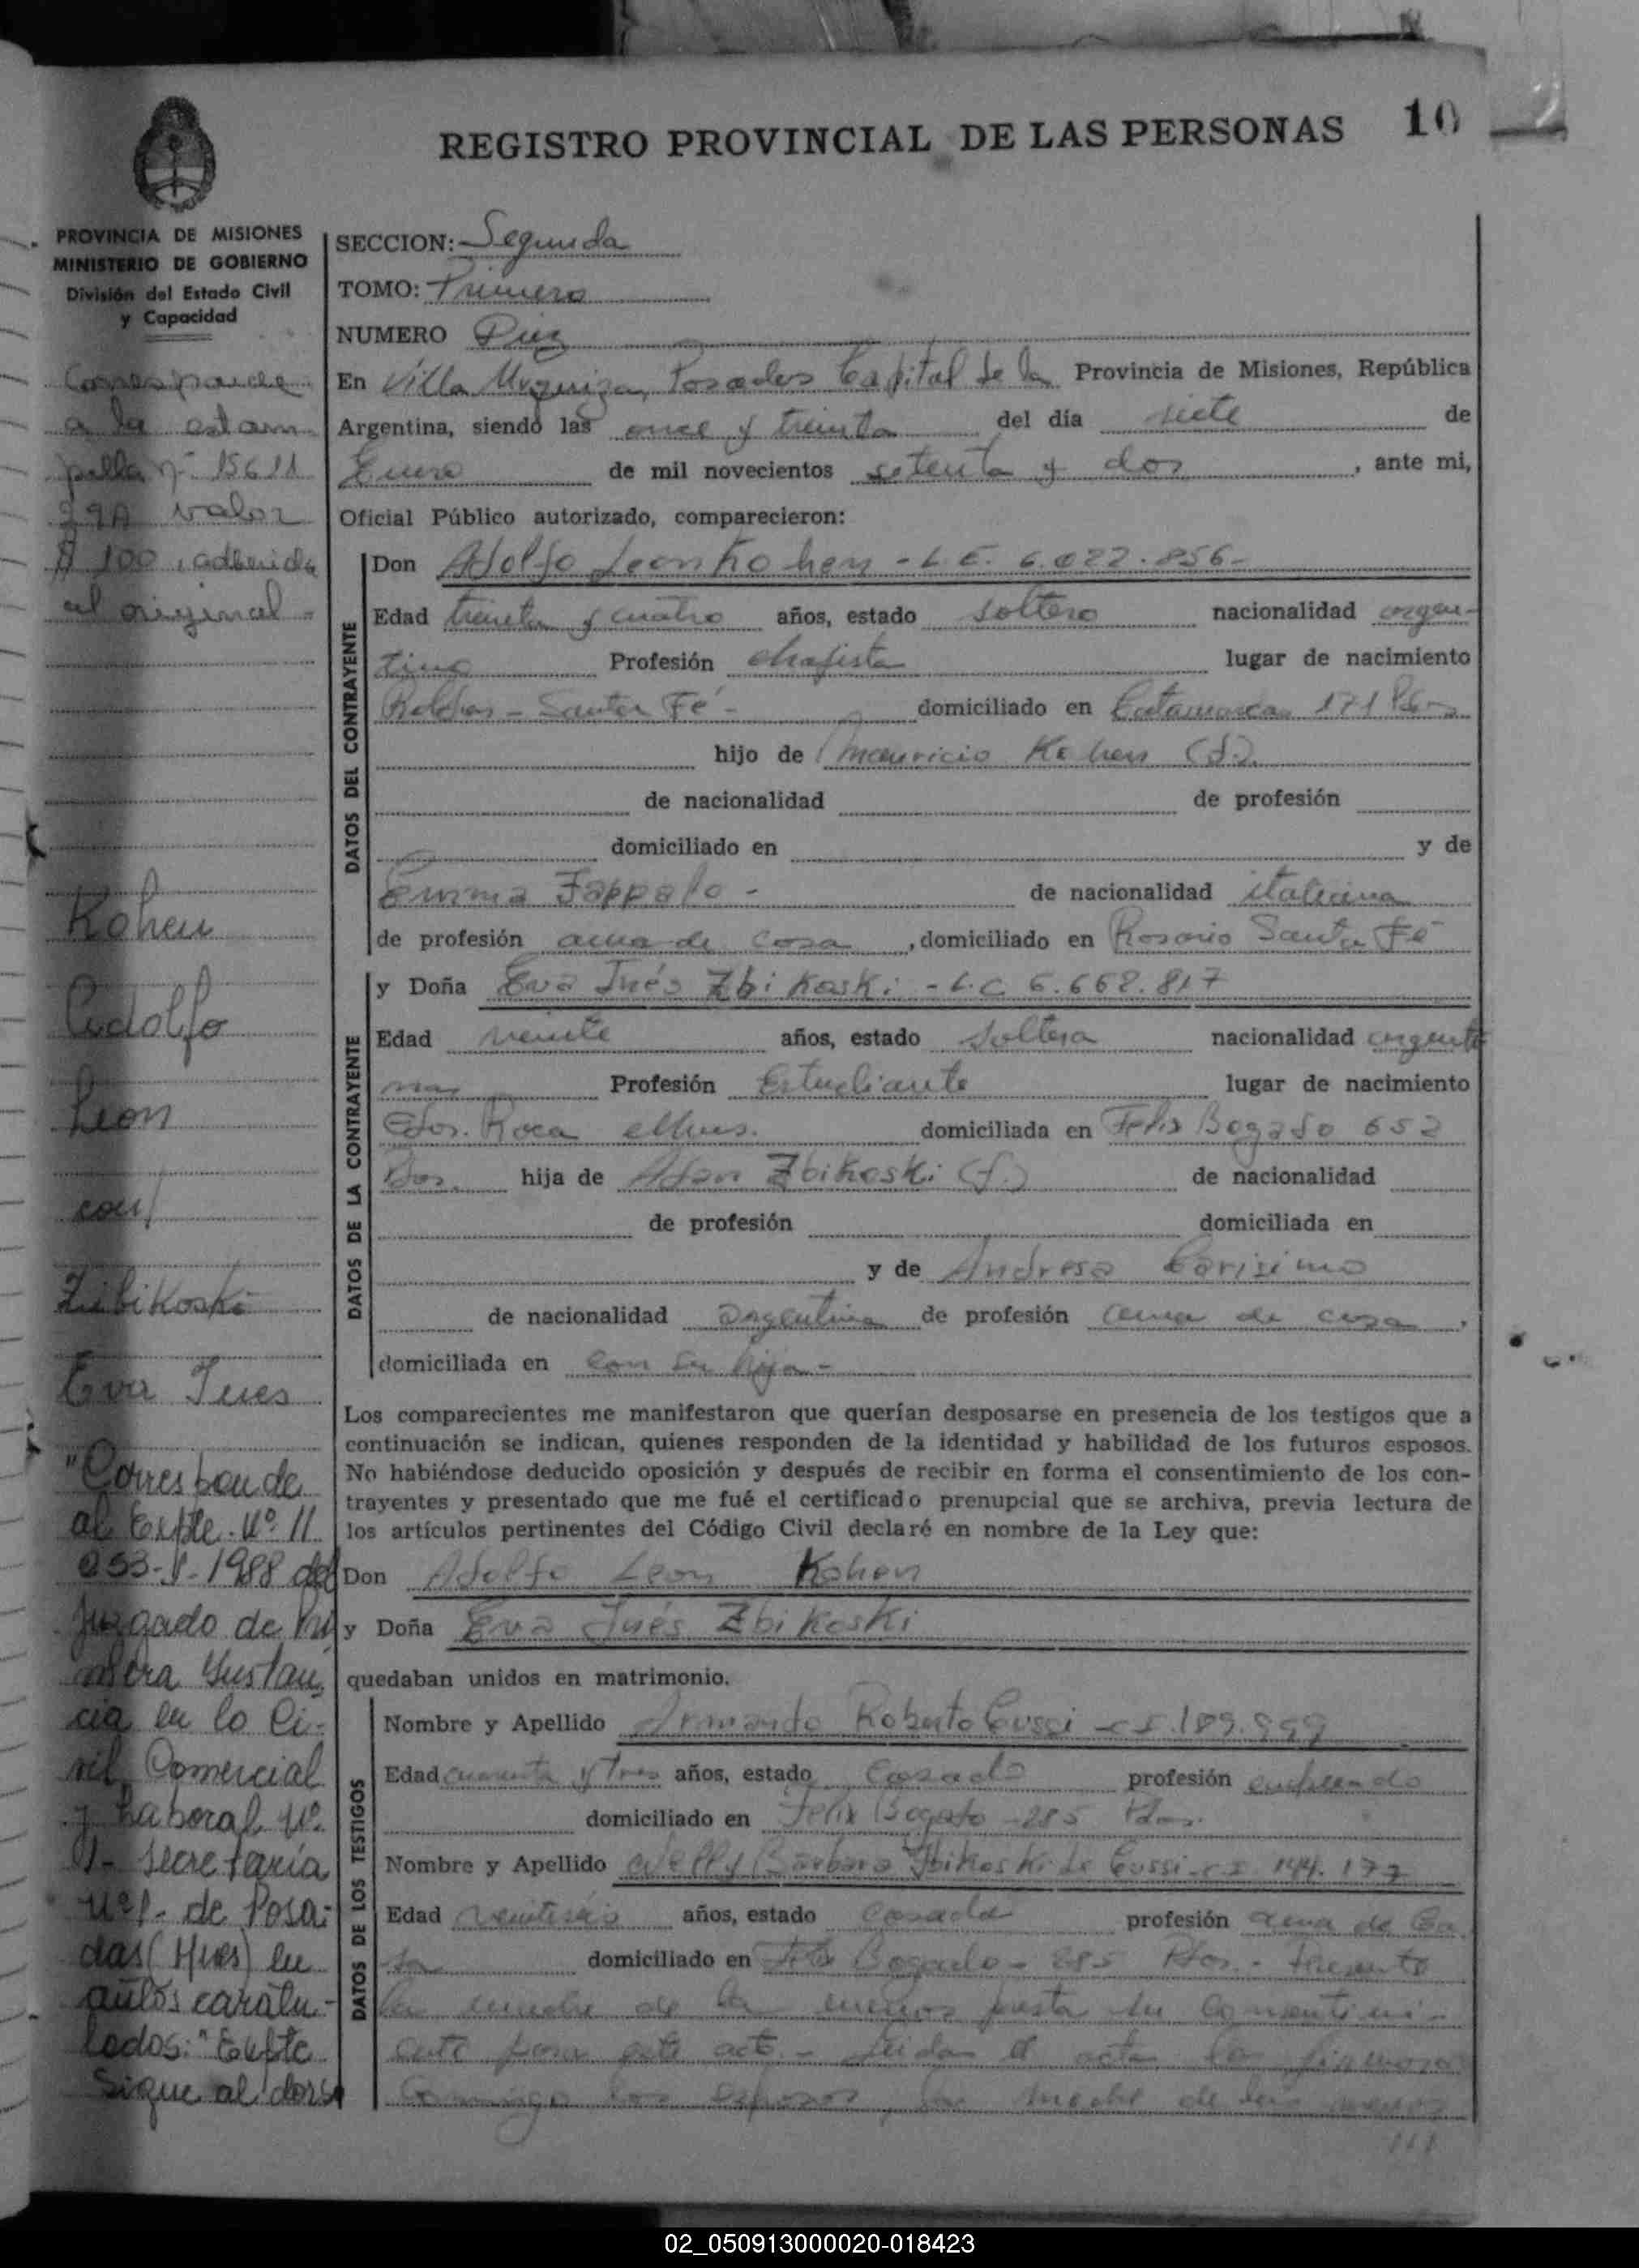 REGISTRO PROVINCIAL DE LAS PERSONAS 10
PROVINCIA DE MISIONES
MINISTERIO DE GOBIERNO
División del Estado Civil
y Capacidad
Corresponde
a la estam
pilla nº 15611
valor
$ 100, adherida
al original
Kohen
Adolfo
Leon
con/
Zibikoski
Eva Ines
"Corresponde
al Expte. Nº 11
253-V-1988 del
Juzgado de Pri
mera Instan
cia en lo Ci-
vil, Comercial
y Laboral Nº
1- Secretaría
Nº1- de Posa-
das (Mnes) en
autos caratu-
lados: "Expte
Sigue al dorso
SECCION: Segunda
TOMO: Primero
NUMERO Diez
En Villa Urquiza, Posadas Capital de la Provincia de Misiones, República
Argentina, siendo las once y treinta del día siete de
Enero de mil novecientos setenta y dos, ante mi,
Oficial Público autorizado, comparecieron:
DATOS DEL CONTRAYENTE
Don Adolfo Leon Kohen - L.E. 6.022.856-
Edad treinta y cuatro años, estado soltero nacionalidad argen-
tino Profesión chapista lugar de nacimiento
Roldan - Santa Fé - domiciliado en Catamarca 171
hijo de Mauricio Kohen (f.)
de nacionalidad de profesión
domiciliado en y de
Emma Fappalo - de nacionalidad italiana
de profesión ama de casa, domiciliado en Rosario Santa Fé
DATOS DE LA CONTRAYENTE
y Doña Eva Inés Zbikoski - L.C 6.668.817
Edad veinte años, estado soltera nacionalidad argenti
na Profesión Estudiante lugar de nacimiento
Gdor. Roca Mnes. domiciliada en Felix Bogado 652
Pdas. hija de Adan Zbikoski (f.) de nacionalidad
de profesión domiciliada en
y de Andresa Carisimo
de nacionalidad argentina de profesión ama de casa,
domiciliada en con su hija -
Los comparecientes me manifestaron que querían desposarse en presencia de los testigos que a
continuación se indican, quienes responden de la identidad y habilidad de los futuros esposos.
No habiéndose deducido oposición y después de recibir en forma el consentimiento de los con-
trayentes y presentado que me fué el certificado prenupcial que se archiva, previa lectura de
los artículos pertinentes del Código Civil declaré en nombre de la Ley que:
Don Adolfo Leon Kohen
y Doña Eva Inés Zbikoski
quedaban unidos en matrimonio.
DATOS DE LOS TESTIGOS
Nombre y Apellido Armando Roberto Cussi - C.I. 189.999
Edad cuarenta y tres años, estado Casado profesión empleado
domiciliado en Felix Bogado - 285 Pdas.
Nombre y Apellido Nelly Barbara Zbikoski de Cussi - C.I. 144.177
Edad veintiséis años, estado Casada profesión ama de Ca
sa domiciliado en Felix Bogado - 285 Pdas. - Presente
la madre de la menor presta su consentimi-
ento para este acto. - Leida el acta la firmaron
Conmigo los esposos, la madre de la menor
///
02_050913000020-018423